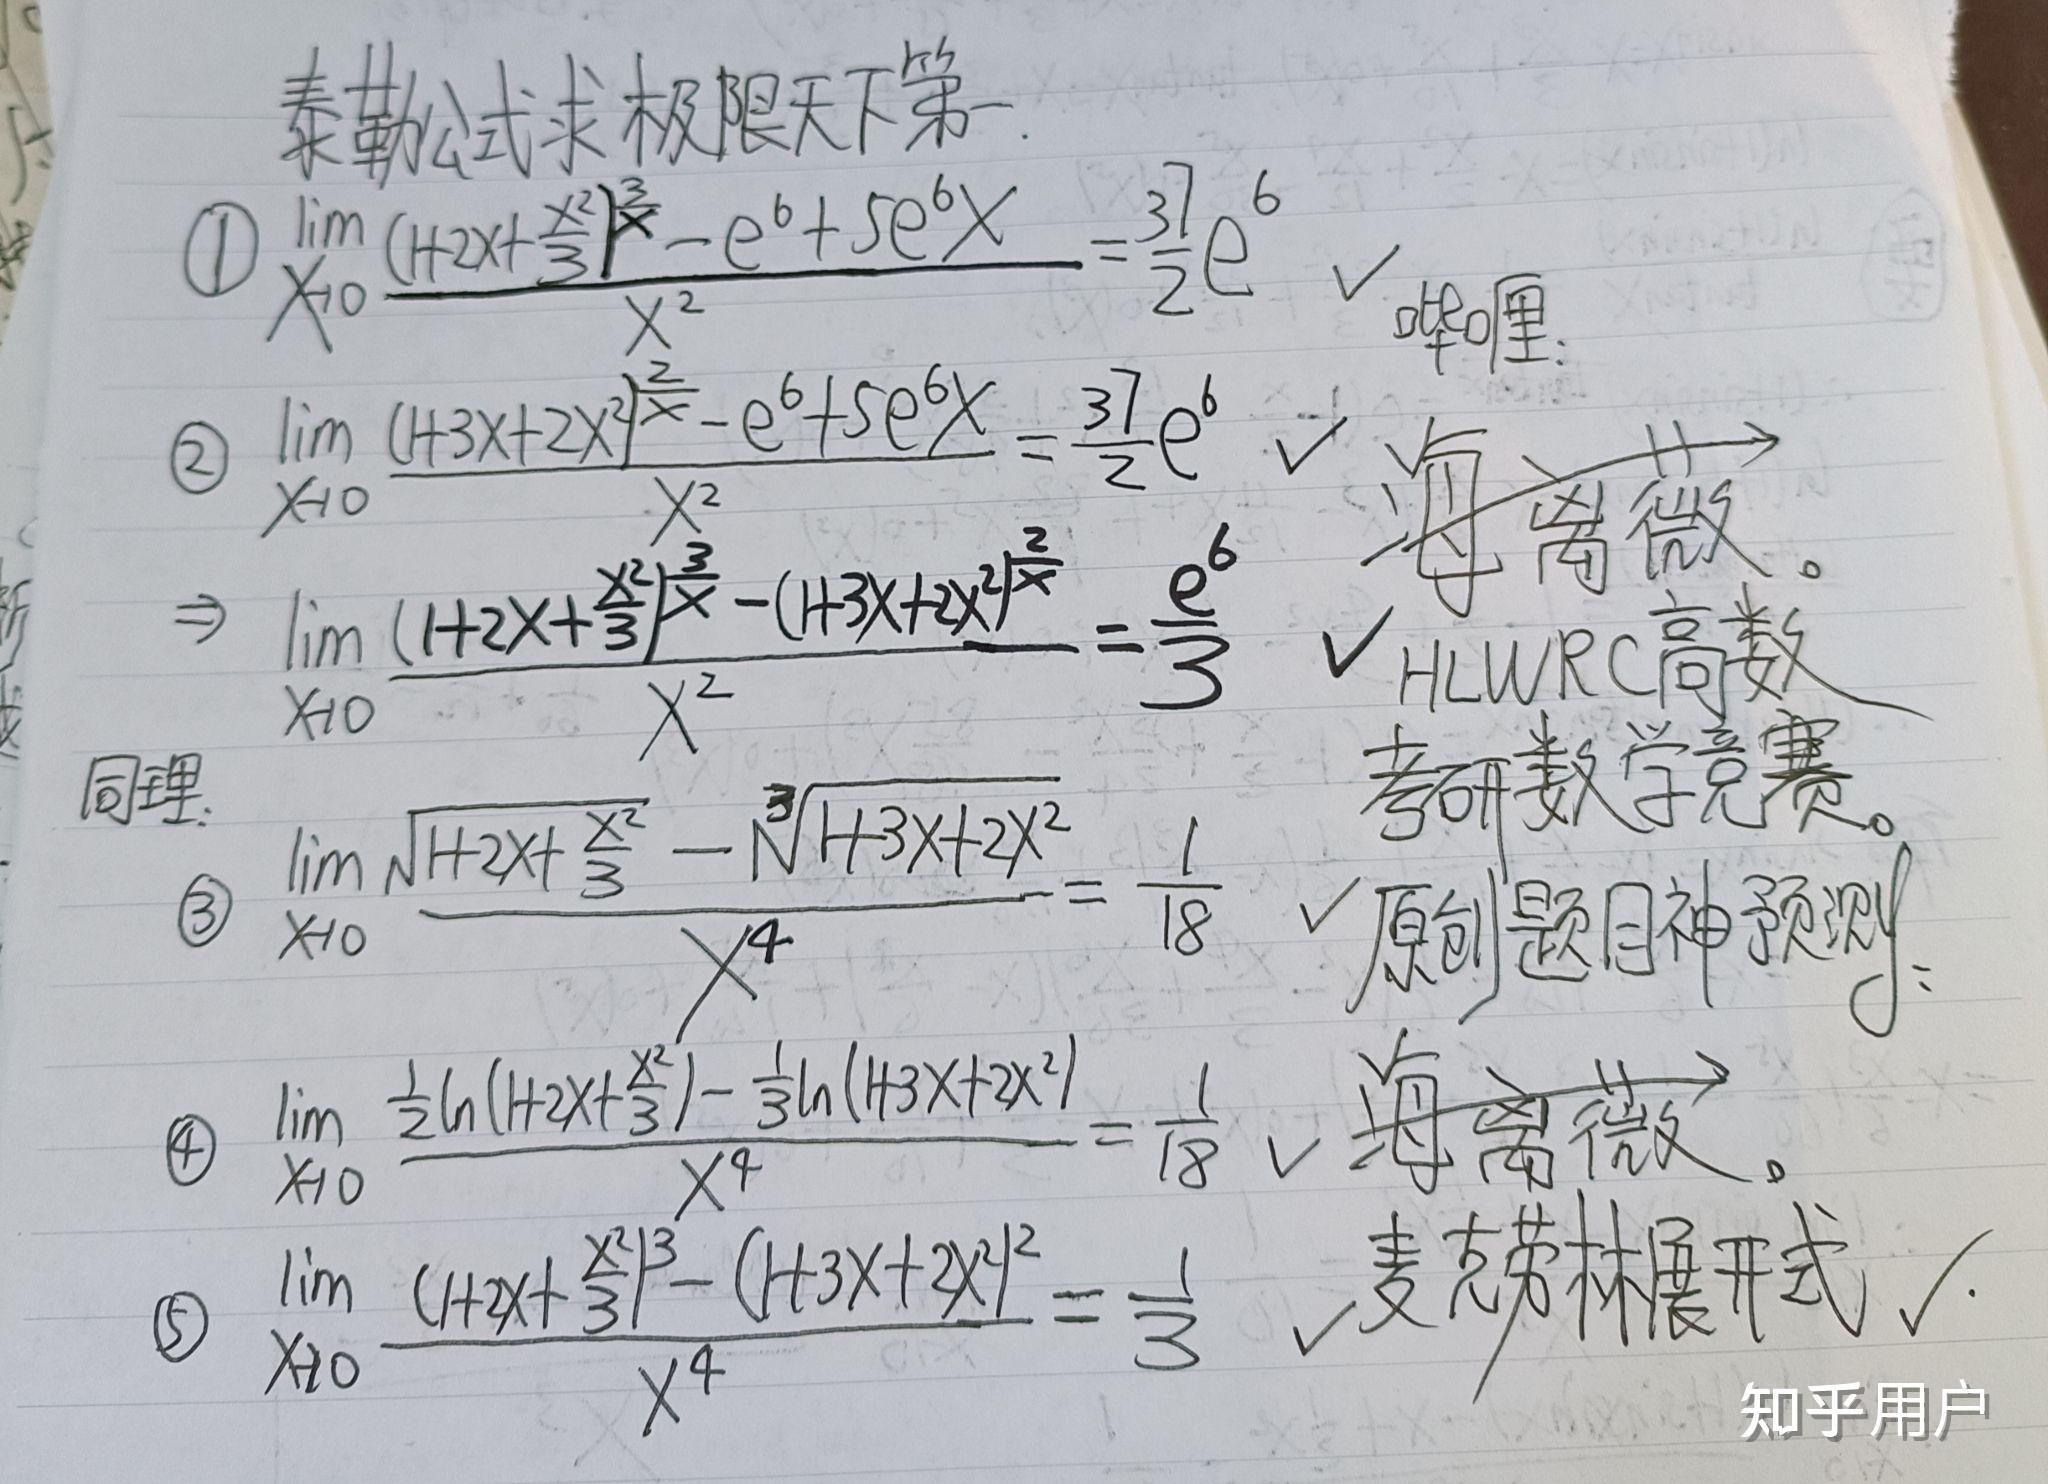 泰勒公式求极限天下第一.
① lim x→0 ((1+2x+x²/3)^(3/x) - e⁶ + 5e⁶x)/x² = 37/2 e⁶ ✓
哔哩:
② lim x→0 ((1+3x+2x²)^(2/x) - e⁶ + 5e⁶x)/x² = 37/2 e⁶ ✓
海离薇。
⇒ lim x→0 ((1+2x+x²/3)^(3/x) - (1+3x+2x²)^(2/x))/x² = e⁶/3 ✓
HLWRC高数
考研数学竞赛。
同理:
③ lim x→0 (√(1+2x+x²/3) - ∛(1+3x+2x²))/x⁴ = 1/18 ✓
原创题目神预测:
④ lim x→0 (1/2 ln(1+2x+x²/3) - 1/3 ln(1+3x+2x²))/x⁴ = 1/18 ✓
海离薇。
⑤ lim x→0 ((1+2x+x²/3)³ - (1+3x+2x²)²)/x⁴ = 1/3 ✓
麦克劳林展开式 ✓.
知乎用户